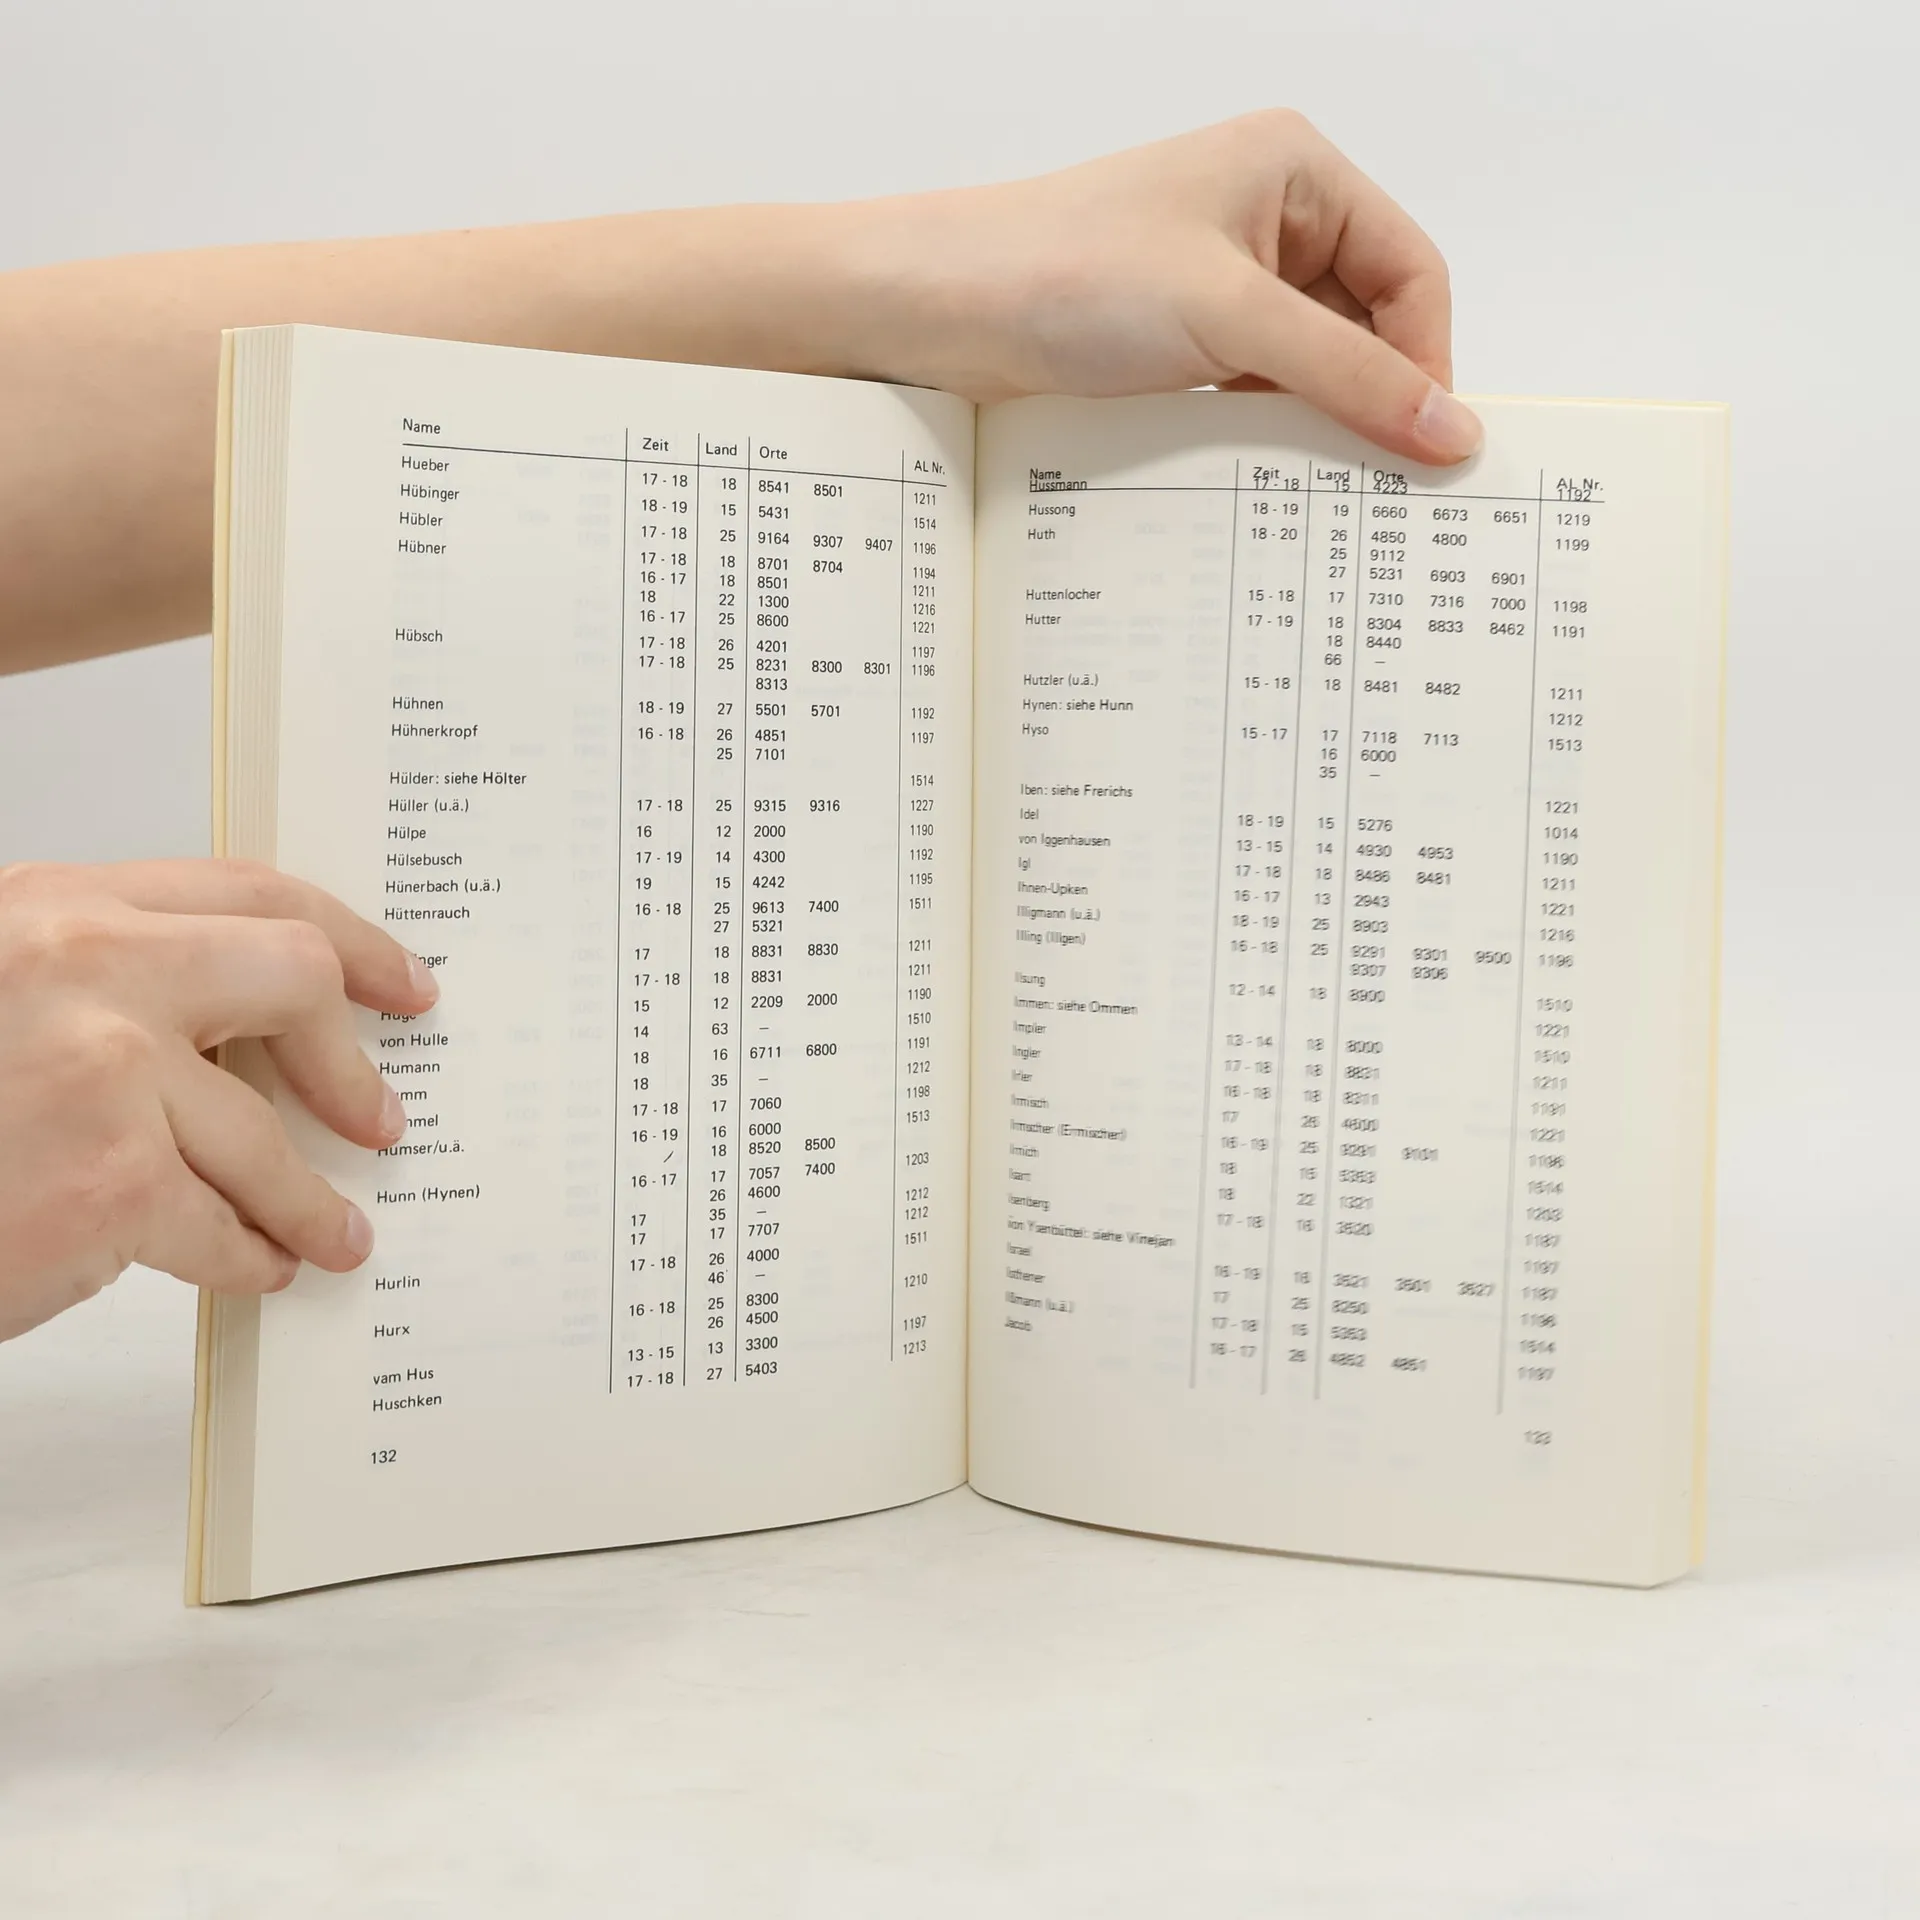 Name Zeit Land Orte AL Nr.
Hueber 17 - 18 18 8541 8501 1211
Hübinger 18 - 19 15 5431 1514
Hübler 17 - 18 25 9164 9307 9407 1196
Hübner 17 - 18 18 8701 8704 1194
16 - 17 18 8501 1211
18 22 1300 1216
16 - 17 25 8600 1221
Hübsch 17 - 18 26 4201 1197
17 - 18 25 8231 8300 8301 1196
8313
Hühnen 18 - 19 27 5501 5701 1192
Hühnerkropf 16 - 18 26 4851 1197
25 7101
Hülder: siehe Hölter 1514
Hüller (u.ä.) 17 - 18 25 9315 9316 1227
Hülpe 16 12 2000 1190
Hülsebusch 17 - 19 14 4300 1192
Hünerbach (u.ä.) 19 15 4242 1195
Hüttenrauch 16 - 18 25 9613 7400 1511
27 5321
17 18 8831 8830 1211
17 - 18 18 8831 1211
Huge 15 12 2209 2000 1190
von Hulle 14 63 – 1510
Humann 18 16 6711 6800 1191
18 35 – 1212
17 - 18 17 7060 1198
Humser/u.ä. 16 - 19 16 6000 1513
/ 18 8520 8500
Hunn (Hynen) 16 - 17 17 7057 7400 1203
26 4600
17 35 – 1212
17 17 7707 1212
Hurlin 17 - 18 26 4000 1511
46 –
Hurx 16 - 18 25 8300 1210
26 4500
vam Hus 13 - 15 13 3300 1197
Huschken 17 - 18 27 5403 1213
132
Name Zeit Land Orte AL Nr.
Hussmann 17 - 18 15 4223 1192
Hussong 18 - 19 19 6660 6673 6651 1219
Huth 18 - 20 26 4850 4800 1199
25 9112
27 5231 6903 6901
Huttenlocher 15 - 18 17 7310 7316 7000 1198
Hutter 17 - 19 18 8304 8833 8462 1191
18 8440
66 –
Hutzler (u.ä.) 15 - 18 18 8481 8482 1211
Hynen: siehe Hunn 1212
Hyso 15 - 17 17 7118 7113 1513
16 6000
35 –
Iben: siehe Frerichs 1221
Idel 18 - 19 15 5276 1014
von Iggenhausen 13 - 15 14 4930 4953 1190
Igl 17 - 18 18 8486 8481 1211
Ihnen-Upken 16 - 17 13 2943 1221
Illigmann (u.ä.) 18 - 19 25 8903 1216
Illing (Illgen) 16 - 18 25 9291 9301 9500 1196
9307 9306
Ilsung 12 - 14 18 8900 1510
Immen: siehe Ommen 1221
Impler 13 - 14 18 8000 1510
Ingler 17 - 18 18 8831 1211
Irler 16 - 18 18 8311 1191
Irmisch 17
Irmscher (Ermischer) 16 - 19 25 9291
Irmich 18 15
Isenberg 17 - 18 16 3520
Israel 16 - 19 16 3521 3501 3527
17 25 8250
Ißmann (u.ä.) 17 - 18 15
Jacob 16 - 17 26 4852 4851
133